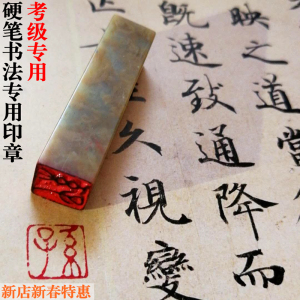 考级专用
硬笔书法专用印章
映之道當
既速致通降而
久視變
新店新春特惠